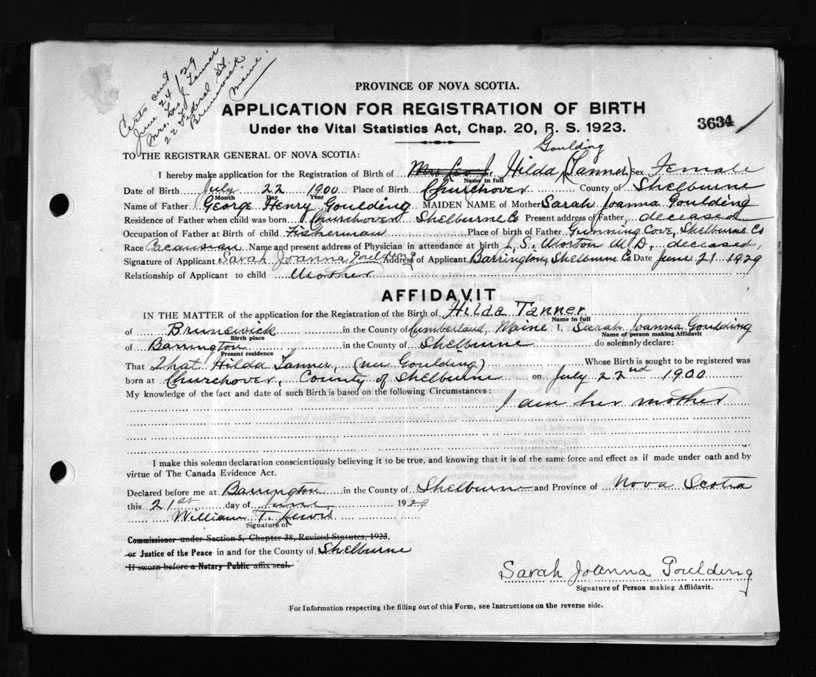 Certs and
June 24/29
Mrs. Leo J. Tanner
22 Federal St.
Brunswick
Maine.
PROVINCE OF NOVA SCOTIA.
APPLICATION FOR REGISTRATION OF BIRTH
Under the Vital Statistics Act, Chap. 20, R. S. 1923.
3634
TO THE REGISTRAR GENERAL OF NOVA SCOTIA:
Goulding
I hereby make application for the Registration of Birth of Mrs Leo J. Hilda Tanner Sex Female
Name in full
Date of Birth July 22 1900 Place of Birth Churchover County of Shelburne
Month Day Year
Name of Father George Henry Goulding MAIDEN NAME of Mother Sarah Joanna Goulding
Residence of Father when child was born Churchover Shelburne Co Present address of Father, deceased
Occupation of Father at Birth of child Fisherman Place of birth of Father Gunning Cove, Shelburne Co
Race Caucasian Name and present address of Physician in attendance at birth L. S. Morton M.D., deceased,
Signature of Applicant Sarah Joanna Goulding Address of Applicant Barrington, Shelburne Co Date June 21 1929
Relationship of Applicant to child Mother
AFFIDAVIT
IN THE MATTER of the application for the Registration of the Birth of Hilda Tanner
Name in full
of Brunswick in the County of Cumberland, Maine I, Sarah Joanna Goulding
Birth place Name of person making Affidavit
of Barrington in the County of Shelburne do solemnly declare:
Present residence
That That Hilda Tanner, (nee Goulding) Whose Birth is sought to be registered was
born at Churchover, County of Shelburne on July 22nd 1900
My knowledge of the fact and date of such Birth is based on the following Circumstances:
I am her mother
I make this solemn declaration conscientiously believing it to be true, and knowing that it is of the same force and effect as if made under oath and by
virtue of The Canada Evidence Act.
Declared before me at Barrington in the County of Shelburn and Province of Nova Scotia
this 21st day of June 1929
William T. Lewis
Signature of
Commissioner under Section 5, Chapter 38, Revised Statutes, 1923,
or Justice of the Peace in and for the County of Shelburne
If sworn before a Notary Public affix seal.
Sarah Joanna Goulding
Signature of Person making Affidavit.
For Information respecting the filling out of this Form, see Instructions on the reverse side.